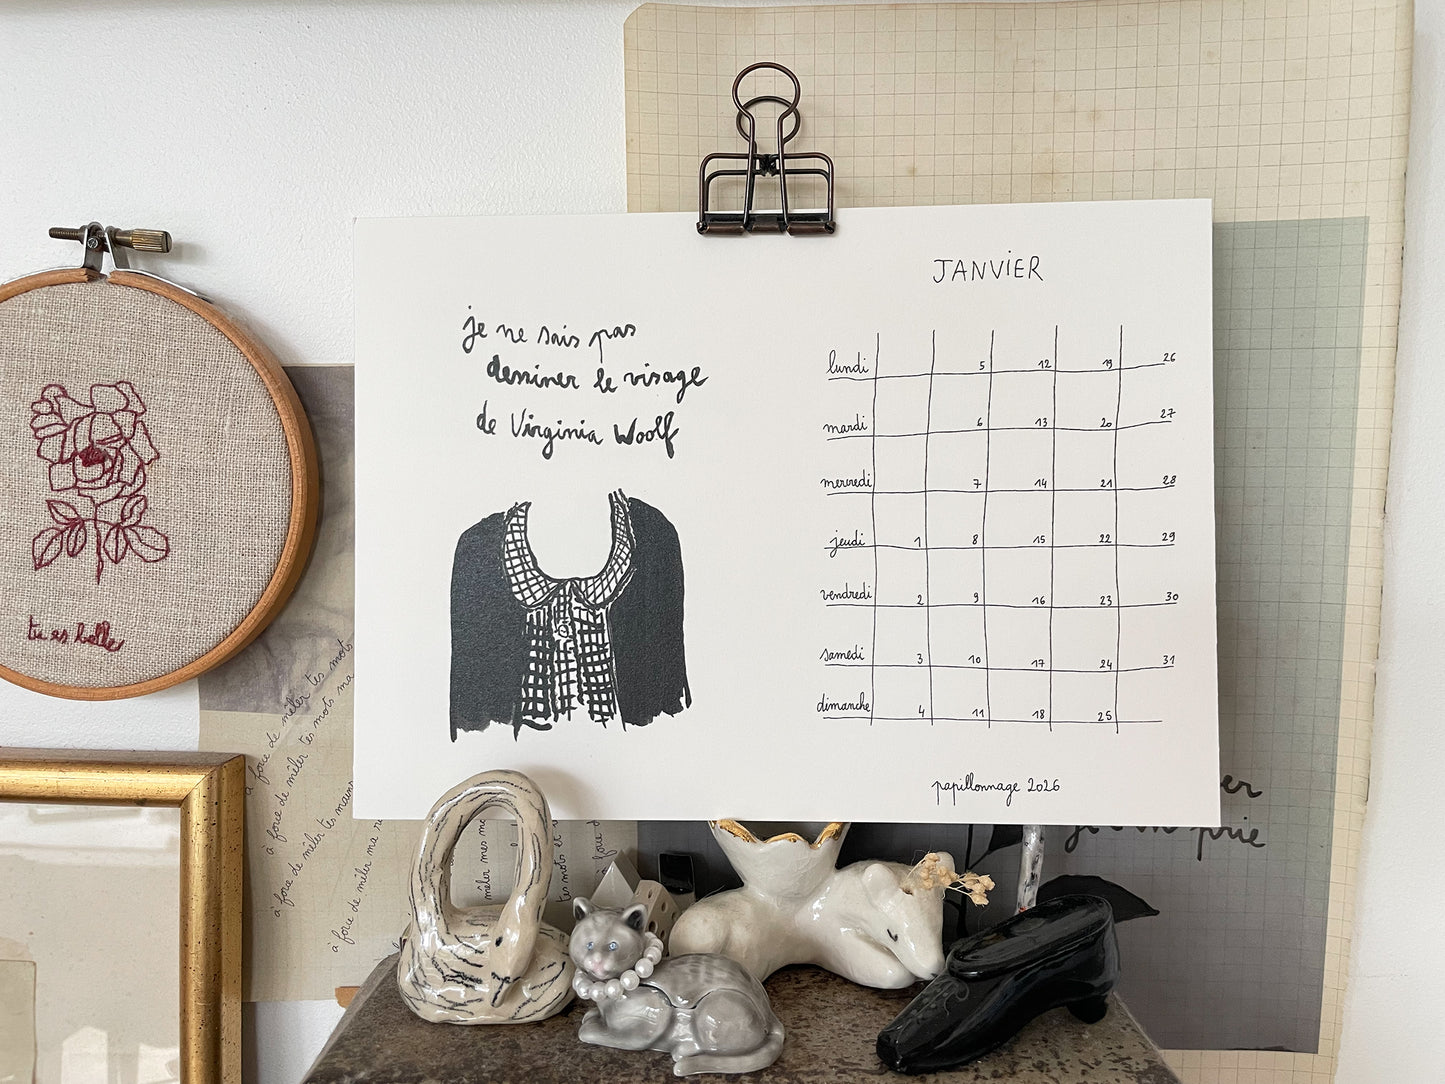 je ne sais pas
dessiner le visage
de Virginia Woolf
JANVIER
lundi 5 12 19 26
mardi 6 13 20 27
mercredi 7 14 21 28
jeudi 1 8 15 22 29
vendredi 2 9 16 23 30
samedi 3 10 17 24 31
dimanche 4 11 18 25
papillonnage 2026
tu es belle
à force de mêler tes mots
à force de mêler tes mots ma
à force de mêler tes mots
à force de mêler ma
mêler mes mo
tes mots et
à force d
er
prie